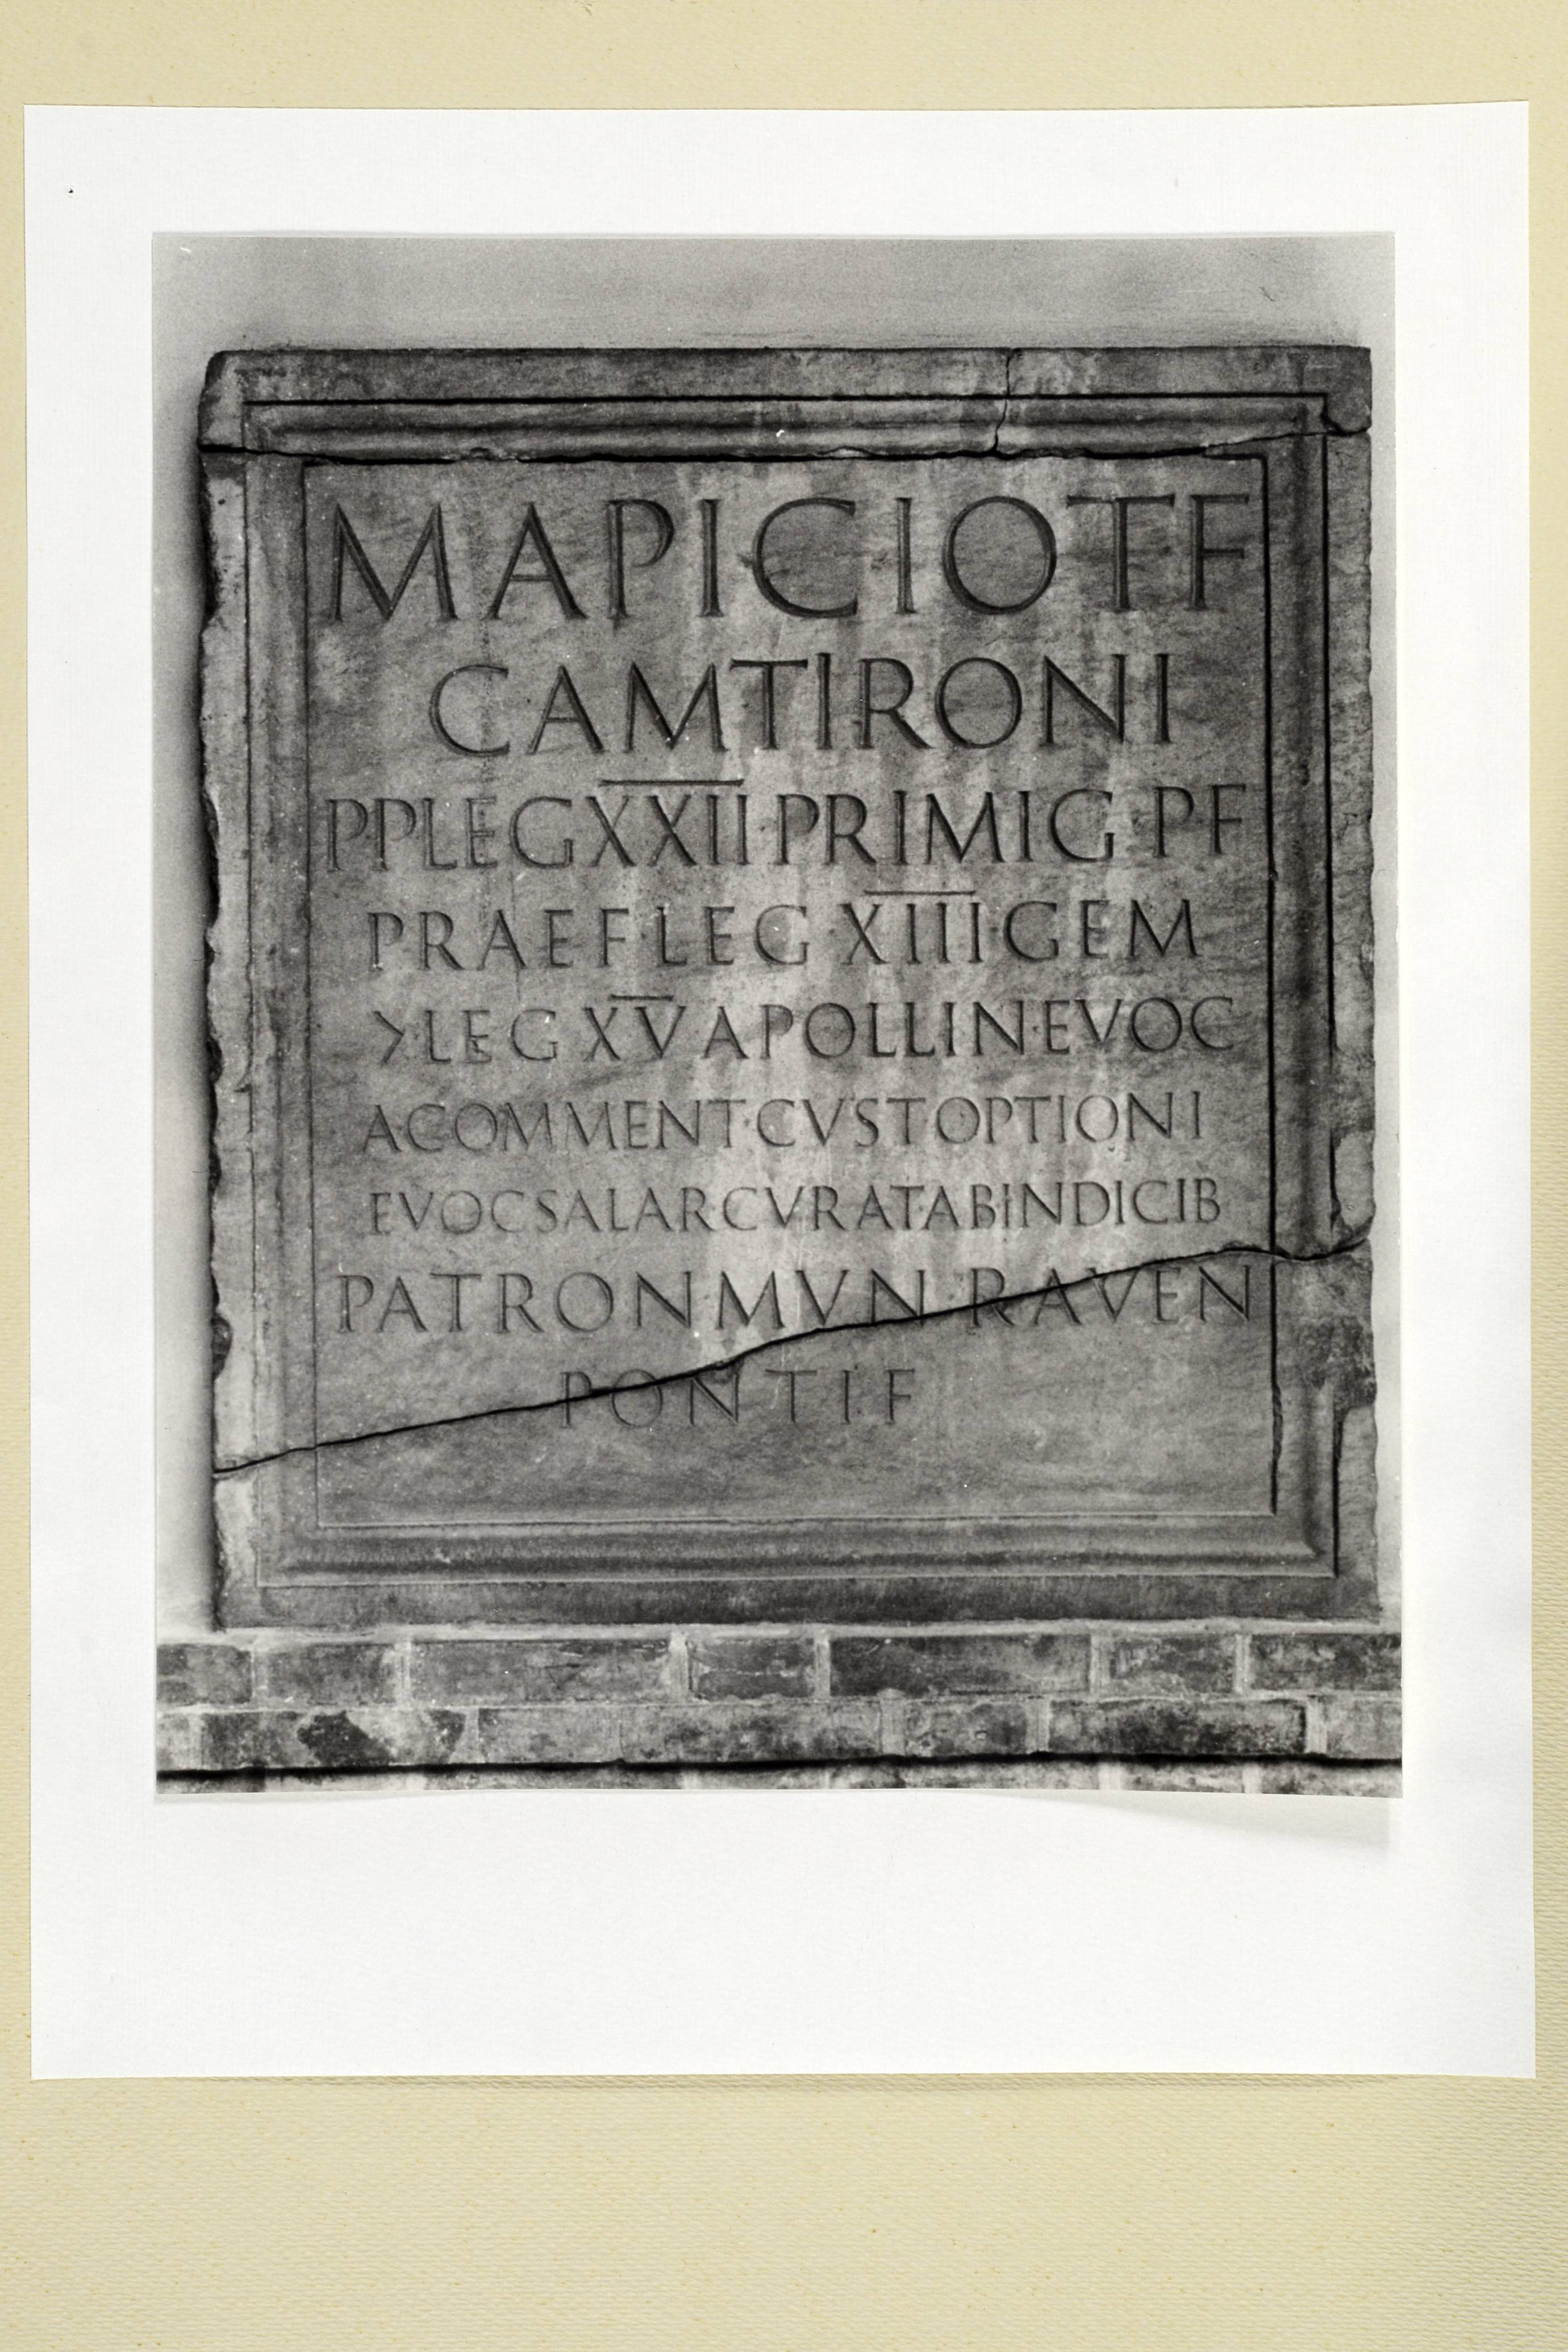 M APICIO T F
CAM TIRONI
P P LEG X̅X̅I̅I̅ PRIMIG P F
PRAEF LEG X̅I̅I̅I̅ GEM
> LEG X̅V̅ APOLLIN·EVOC
A·COMMENT·CVST OPTIONI
EVOC SALAR·CVRAT AB INDICIB
PATRON MVN RAVEN
PONTIF